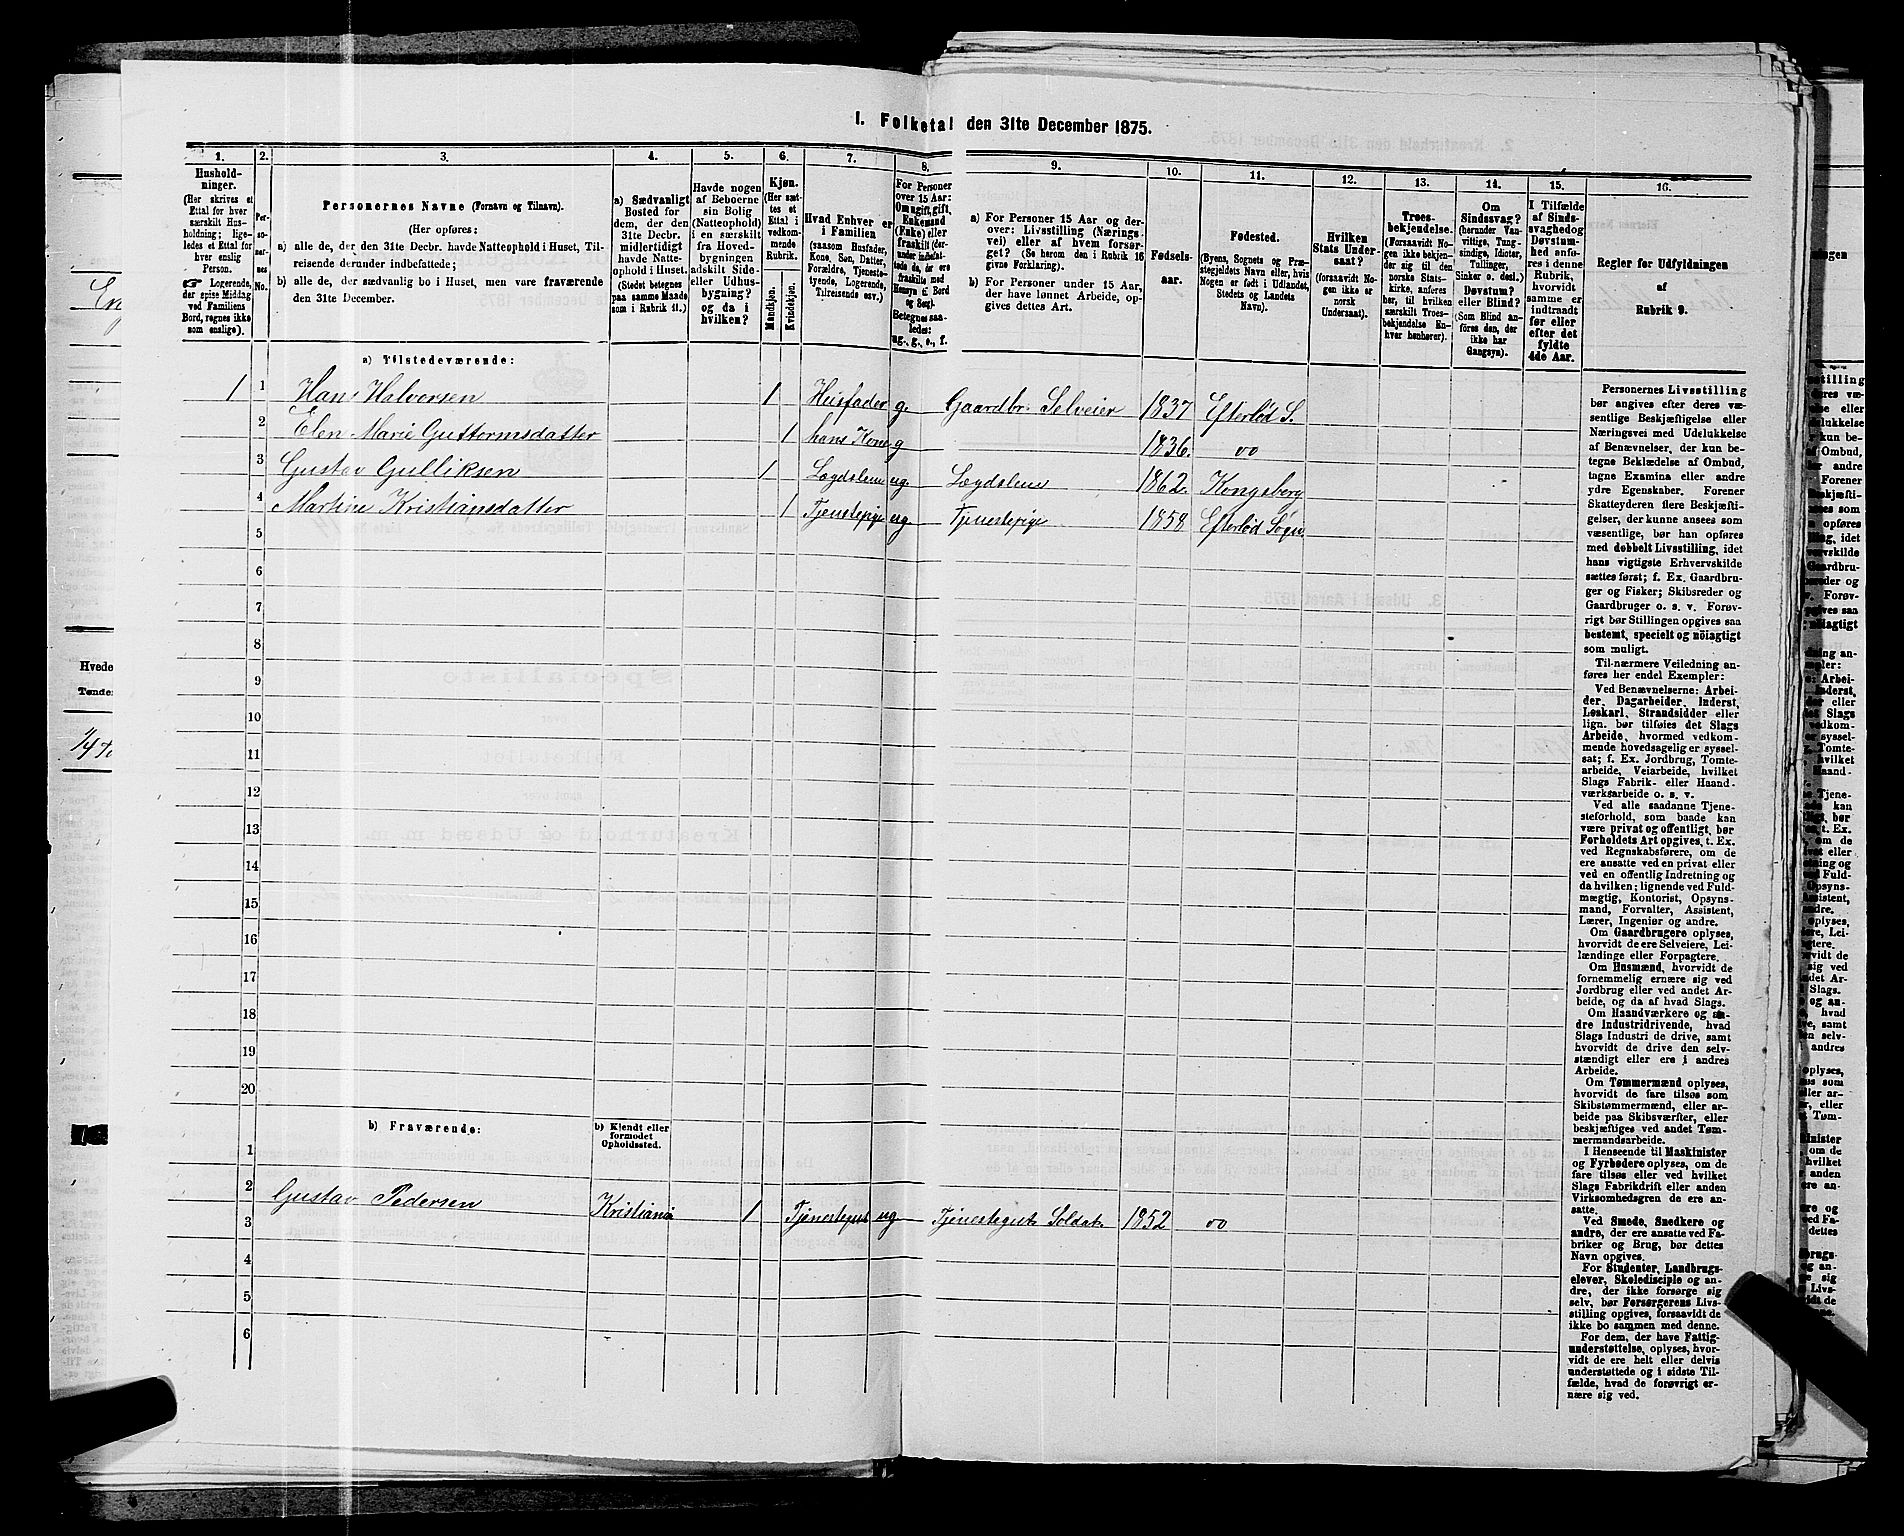 I. Folketal den 31te December 1875.
1. 2. 3. 4. 5. 6. 7. 8. 9. 10. 11. 12. 13. 14. 15. 16.
Hushold-
ninger.
(Her skrives et
Ettal for hver
særskilt Hus-
holdning; lige-
ledes et Ettal for
hver enslig
Person.
☞ Logerende,
der spise Middag
ved Familiens
Bord, regnes ikke
som enslige).
Per-
so-
ner-
nes
No.
Personernes Navne (Fornavn og Tilnavn).
(Her opføres:
a) alle de, der den 31te Decbr. havde Natteophold i Huset, Til-
reisende derunder indbefattede;
b) alle de, der sædvanlig bo i Huset, men vare fraværende
den 31te December.
a) Sædvanligt
Bosted for
dem, der den
31te Decbr.
midlertidigt
havde Natte-
ophold i Huset.
(Stedet betegnes
paa samme Maade
som i Rubrik 11.)
Havde nogen
af Beboerne
sin Bolig
(Natteophold)
i en særskilt
fra Hoved-
bygningen
adskilt Side-
eller Udhus-
bygning?
og da i
hvilken?
Kjøn.
(Her sæt-
tes et
Ettal i
vedkom-
mende
Rubrik.
Mandkjøn.
Kvindekjøn.
Hvad Enhver er
i Familien
(saasom Husfader,
Kone, Søn, Datter,
Forældre, Tjeneste-
tyende, Logerende,
Tilreisende osv.)
For Personer
over 15 Aar:
Om ugift, gift,
Enkemand
(Enke) eller
fraskilt (der-
under indbefat-
tede de, der ere
fraskilte med
Hensyn t. Bord
og Seng).
Betegnes saa-
ledes:
ug., g., e., f.
a) For Personer 15 Aar og der-
over: Livsstilling (Nærings-
vei) eller af hvem forsør-
get? (Se herom den i Rubrik 16
givne Forklaring).
b) For Personer under 15 Aar,
der have lønnet Arbeide, op-
gives dettes Art.
Fødsels-
aar.
Fødested.
(Byens, Sognets og Præ-
stegjeldets Navn eller, hvis
Nogen er født i Udlandet,
Stedets og Landets
Navn).
Hvilken
Stats Under-
saat?
(forsaavidt No-
gen ikke er
norsk
Undersaat).
Troes-
bekjendelse.
(Forsaavidt No-
gen ikke bekjen-
der sig til den
norske Stats-
kirke, anføres
her, til hvilken
særskilt Troes-
bekjendelse En-
hver henhører).
Om
Sindssvag?
(herunder Van-
vittige, Tung-
sindige, Idioter,
Tullinger,
Sinker o. desl.)
Døvstum?
eller Blind?
(Som Blind an-
føres den, der
ikke har
Gangsyn).
I Tilfælde
af Sinds-
svaghed og
Døvstum-
hed anfø-
res i denne
Rubrik,
hvorvidt
samme er
indtraadt
før eller
efter det
fyldte
4de Aar.
Regler for Udfyldningen
af
Rubrik 9.
a) Tilstedeværende:
1 1 Hans Halversen 1 Husfader g. Gaardbr. Selveier 1837 Efterlød S.
2 Elen Marie Guttormsdatter 1 hans Kone g 1836. oo
3 Gustav Gulliksen 1 Lægdslem ug Lægdslem 1862. Kongsberg
4 Martine Kristiansdatter 1 Tjenestepige ug Tjenestepige 1858 Efterlød Sogn
5
6
7
8
9
10
11
12
13
14
15
16
17
18
19
20
b) Fraværende: b) Kjendt eller
formodet
Opholdssted.
1
2
Gustav Pedersen Kristiania 1 Tjenestegut ug Tjenestegut Soldat. 1852 oo
3
4
5
6
Personernes Livsstilling
bør angives efter deres væ-
sentlige Beskjæftigelse eller
Næringsvei med Udelukkelse
af Benævnelser, der kun be-
tegne Beklædelse af Ombud,
tagne Examina eller andre
ydre Egenskaber. Forener
Skatteyderen flere Beskjæfti-
gelser, der kunne ansees som
væsentlige, bør han opføres
med dobbelt Livsstilling, idet
hans vigtigste Erhvervskilde
sættes først; f. Ex. Gaardbru-
ger og Fisker; Skibsreder og
Gaardbruger o. s. v. Forøv-
rigt bør Stillingen opgives saa
bestemt, specielt og nöiagtigt
som muligt.
Til nærmere Veiledning an-
føres her endel Exempler:
Ved Benævnelserne: Arbei-
der, Dagarbeider, Inderst,
Løskarl, Strandsidder eller
lign. bør tilføies det Slags
Arbeide, hvormed vedkom-
mende hovedsagelig er syssel-
sat; f. Ex. Jordbrug, Tomte-
arbeide, Veiarbeide, hvilket
Slags Fabrik- eller Haand-
værksarbeide o. s. v.
Ved alle saadanne Tjene-
steforhold, som baade kan
være privat og offentligt, bør
Forholdets Art opgives, t. Ex.
ved Regnskabsførere, om de
ere ansatte ved en privat eller
ved en offentlig Indretning og
da hvilken; lignende ved Fuld-
mægtig, Kontorist, Opsyns-
mand, Forvalter, Assistent,
Lærer, Ingeniør og andre.
Om Gaardbrugere oplyses,
hvorvidt de ere Selveiere, Lei-
lændinge eller Forpagtere.
Om Husmænd, hvorvidt de
fornemmelig ernære sig ved
Jordbrug eller ved andet Ar-
beide, og da af hvad Slags.
Om Haandværkere og an-
dre Industridrivende, hvad
Slags Industri de drive, samt
hvorvidt de drive den selv-
stændigt eller ere i andres
Arbeide.
Om Tømmermænd oplyses,
hvorvidt de fare tilsøs som
Skibstømmermænd, eller ar-
beide paa Skibsværfter, eller
beskjæftiges ved andet Tøm-
mermandsarbeide.
I Henseende til Maskinister
og Fyrbødere oplyses, om de
fare tilsøs eller ved hvilket
Slags Fabrikdrift eller anden
Virksomhedsgren de ere an-
satte.
Ved Smede, Snedkere og
andre, der ere ansatte ved Fa-
briker og Brug, bør dettes
Navn opgives.
For Studenter, Landbrugs-
elever, Skoledisciple og an-
dre, der ikke forsørge sig
selv, bør Forsørgerens Livs-
stilling opgives, forsaavidt de
ikke bo sammen med denne.
For dem, der have Fattig-
understøttelse, oplyses, hvor-
vidt de ere helt eller delvis
understøttede og i sidste Til-
fælde, hvad de forøvrigt er-
nære sig ved.
Hvede
Tønder